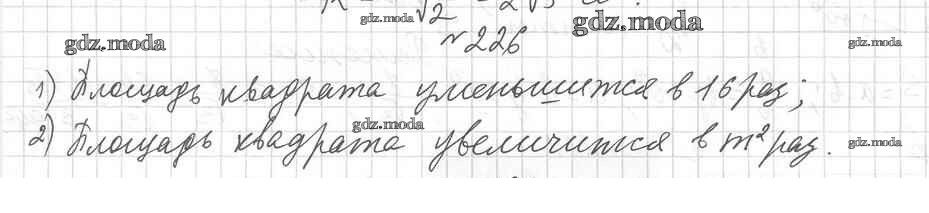 gdz.moda
gdz.moda
gdz.moda
№226
gdz.moda
1) Площадь квадрата уменьшится в 16 раз;
gdz.moda
2) Площадь квадрата увеличится в m² раз.
gdz.moda